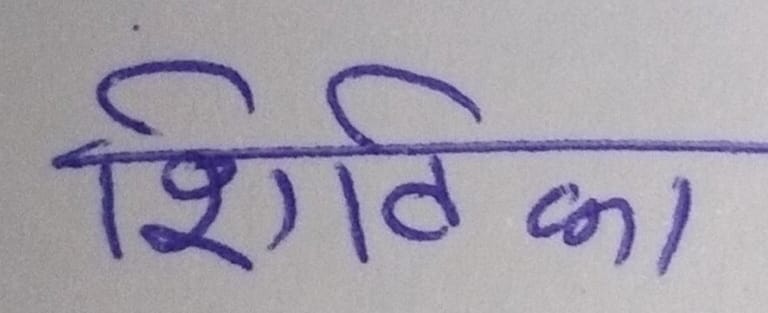 शिविका